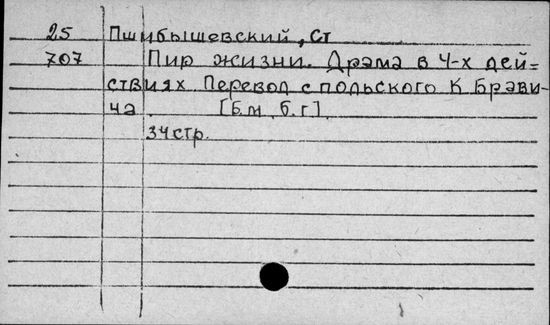 25 Пшибышевский, Ст
707 Пир жизни. Драма в 4-х дей=
ствиях Перевод с польского К Брави-
ча [б.м, б.г]
34стр.